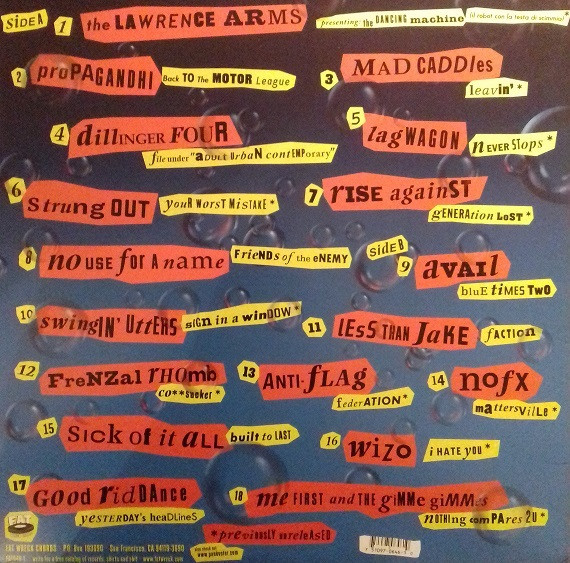 sideA
1 the LAWRENCE ARMS presenting: the DANCING machine (il robot con la testa di scimmia)*
2 proPAGANDHI Back TO The MOTOR League
3 MAD CADDIes
leavin' *
4 dillINGER FOUR
file under "aDULt UrbaN contEMPorary"
5 lagWAGON nEVER STOPs *
6 Strung OUT youR WorsT MisTAKE *
7 rISE agaiNST
gENERAtion LoST *
8 no USE foR A name FrieNDs of the eNEMY
sideB
9 avAIl
bluE tiMES TWO
10 swingIN' UttERS siGn in a winDOW *
11 lESS THAN JaKE fACTION
12 FreNZal rHOmb
co**sucker *
13 ANTI-fLAg
federATION *
14 nofx
mattersVilLe *
15 Sick of it aLL built to LAST
16 wizo i HATE yOU *
17 GOod ridDAnce
yESTERDAY's heaDLineS
18 me FIRST and THE giMMe giMMes
nOTHING comPAres 2U *
*previously unreleased
FAT
FAT WRECK CHORDS P.O. Box 193690 San Francisco, CA 94119-3690